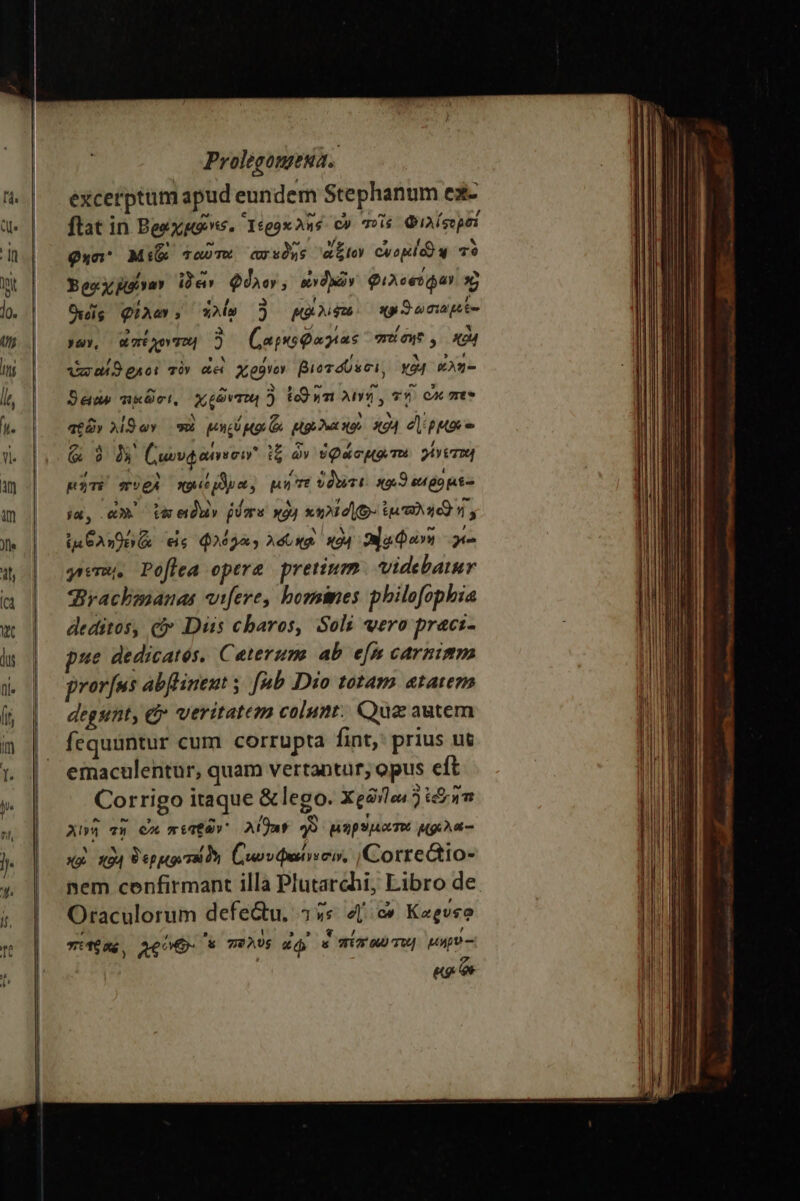 Prolegomena.
excerptum apud eundem Stephanum ex-
ſtat in Βραχμᾶνες. Ἱεροκλῆς ἐν τοῖς Φιλίστορσί
φησι· Μετὰ ταῦτα ἄξιον ἐνομίσθη τὸ
Βραχμάνων ἰδεῖν φῦλον, ἀνδρῶν φιλοσόφων καὶ
θεοῖς φίλων, ἡλίῳ δὲ μάλιστα καθωσιωμέ-
νων, ἀπέχονται δὲ σαρκοφαγίας πάσης, καὶ
ὑπαίθριοι τὸν ἀεὶ χρόνον βιοτεύουσι, καὶ ἀλή-
θειαν τιμῶσι, χρῶνται δὲ ἐσθῆτι λινῇ, τῇ ἐκ πε-
τρῶν λίθων
μήτε πυρὶ καιόμενα, μήτε ὕδατι καθαιρόμε-
να, ἀλλ'
εἰς φλόγα, λευκὰ καὶ διαφανῆ γί-
γνεται. Poſtea operæ pretium videbatur
Brachmanas viſere, homines philoſophia
deditos, & Diis charos, Soli vero præci-
pue dedicatos. Cæterum ab eſu carnium
prorſus abſtinent; ſub Dio totam ætatem
degunt, & veritatem colunt. Quæ autem
ſequuntur cum corrupta ſint, prius ut
emaculentur, quam vertantur, opus eſt
Corrigo itaque & lego. Χρῶνται δὲ ἐσθῆτι
λινῇ τῇ ἐκ πετρῶν· λίθων γὰρ μηρύματα μαλα-
κὰ καὶ δερματώδη συνυφαίνουσιν. Correctio-
nem confirmant illa Plutarchi, Libro de
Oraculorum defectu. τῆς δ' ἐν Καρύστῳ
πέτρας, χρόνος οὐ πολὺς ἀφ' οὗ πέπαυται μηρύ-
μαθα